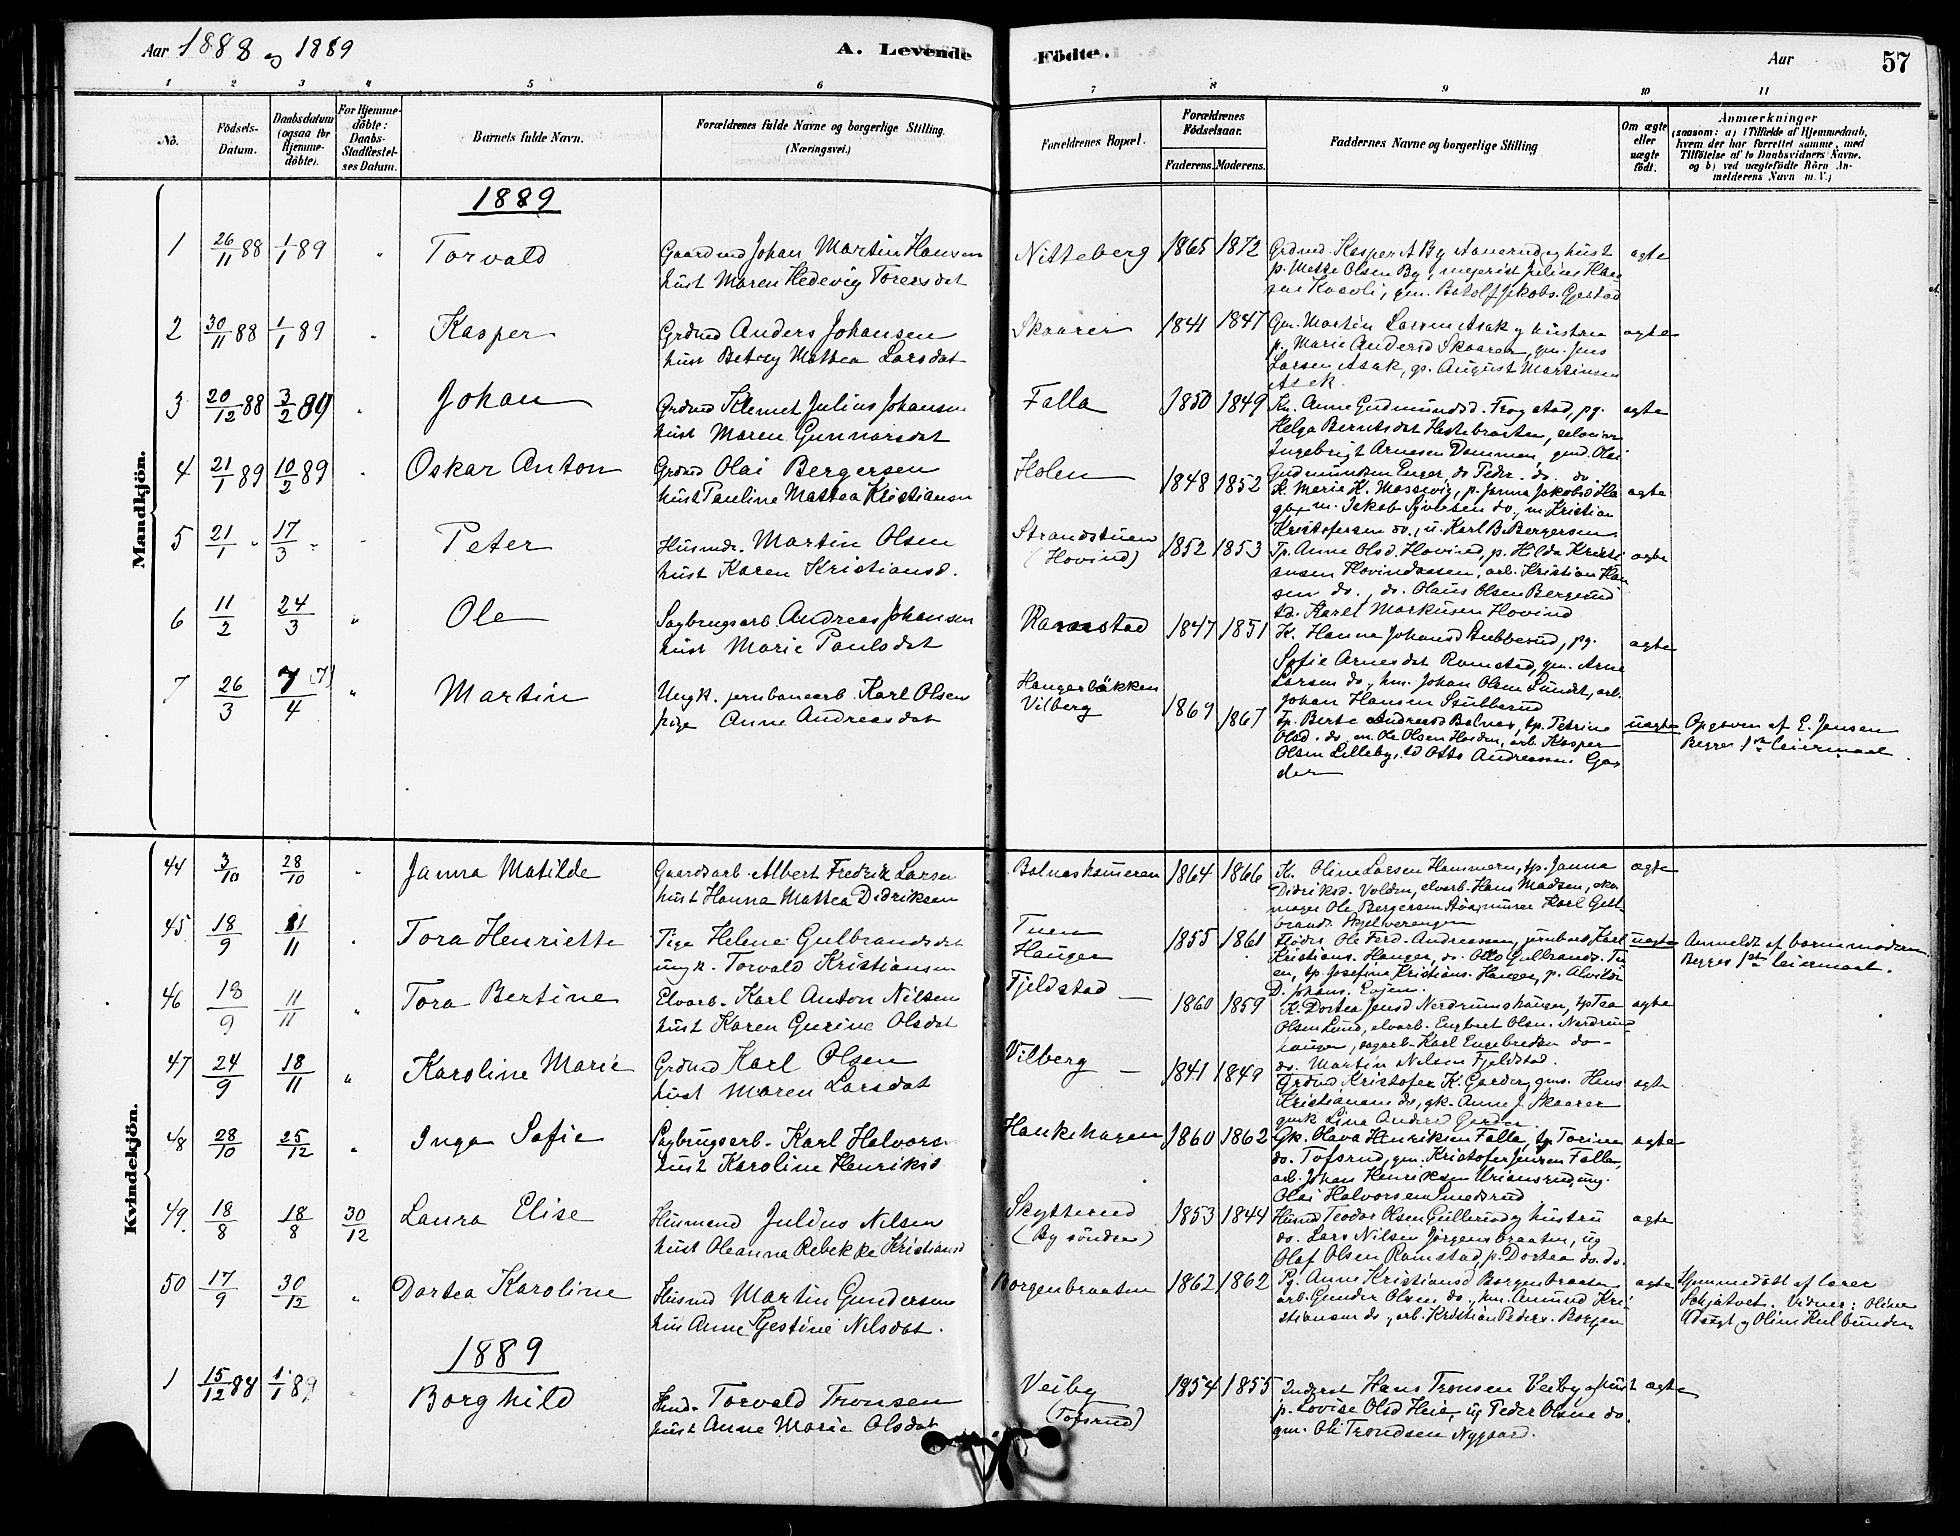 Aar 1888 og 1889
A. Levende Födte.
Aar
57
1 2 3 4 5 6 7 8 9 10 11
No.
Födsels-Datum.
Daabsdatum (ogsaa for Hjemme-döbte).
For Hjemme-döbte: Daabs-Stadfæstel-ses Datum.
Barnets fulde Navn.
Forældrenes fulde Navne og borgerlige Stilling.
(Næringsvei.)
Forældrenes Bopæl.
Forældrenes Födselsaar.
Faderens. Moderens.
Faddernes Navne og borgerlige Stilling
Om ægte eller uægte født.
Anmærkninger
(saasom: a) i Tilfælde af Hjemmedaab,
hvem der har forrettet samme, med
Tilføielse af to Daabsvidners Navne.
og b) ved uægtefödte Börn An-
melderens Navn m. V.)
Mandkjön.
1889
1 26/11 88 1/1 89 " Torvald
Gaardmd Johan Martin Hansen
hust Maren Hedevig Toresdat
Nitteberg 1865 1872
Grdmd Kasper A By Aanerud og hust
p. Mette Olsen By, meierist Julius Han
sen Kaavli, gm. Botolf Jakobs. Gjestad
ægte
2 30/11 88 1/1 89 " Kasper
Grdmd Anders Johansen
hust Betzy Mattea Larsdat
Skaarer 1841 1847
Gm. Martin Larsen Asak og hustru
p. Marie Andersd Skaarer, gm. Jens
Larsen Asak, gs. August Martinsen
Asak
ægte
3 20/12 88 3/2 89 " Johan
Grdmd Klemet Julius Johansen
hust Maren Gunnarsdat
Falla 1850 1849
Kn. Anne Gudmundsd. Trogstad, pg.
Helga Berntsdat Hestebraaten, selveier
Ingebrigt Arnesen Dammen, gmd. Olai
Gudmundsen Enger, do Peder do. do.
ægte
4 21/1 89 10/2 89 " Oskar Anton
Grdmd Olai Bergersen
hust Pauline Mattea Kristiansen
Holen 1848 1852
K. Marie K. Mossevig, p. Janna Jakobsd Ha
ga, m. Jakob Syversen do., m Kristian
Kristofersen do., u. Karl B. Bergersen
ægte
5 21/1 " 17/3 " " Peter
Husmdr. Martin Olsen
hust Karen Kristiansd.
Strandstuen
(Hovind)
1852 1853
Tp. Anne Olsd. Hovind, p. Hilda Kristi
ansen Hovindaasen, arb. Kristian Han
sen do., do. Olaus Olsen Bergerud
td. Karel Markusen Hovind
ægte
6 11/2 24/3 " Ole
Sagbrugsarb. Andreas Johansen
hust Marie Paulsdat
Ramstad 1847 1851
K. Hanna Johansd Stubberud, pg.
Sofie Arnesdat Ramstad, gm. Arne
Larsen do., hm. Johan Olsen Sundt, arb.
Johan Hansen Stubberud
ægte
7 26/3 7/4 " Martin
Ungk. jernbanearb Karl Olsen
pige Anne Andreasdat
Haugerbakken
Vilberg
1869 1867
Tp. Berte Andreasd Bolnes, tp. Petrine
Olsd. do, m. Ole Olsen Holden, arb. Kasper
Olsen Lilleby, td Otto Andreassen Gar
der
uægte
Opgiven af E. Jensen
Begges 1ste leiermaal
Kvindekjön.
44 3/10 28/10 " Janna Matilde
Gaardsarb. Albert Fredrik Larsen
hust Hanna Mattea Didriksen
Bolneshameren 1864 1866
K. Oline Larsen Hammern, tp. Janna
Didriksd. Volden, elvarb. Hans Madsen, sko
mager Ole Bergersen Aas, murer Karl Gulb
brands. Skjelverengen
ægte
45 18/9 11/11 " Tora Henriette
Pige Helene Gulbrandsdat
ungk. Torvald Kristiansen
Tuen
Hauger
1855 1861
Fløder Ole Ferd. Andreassen, jernbarb Karl
Kristians. Hauger, do. Otto Gulbrands. Tu
en, tp. Josefine Kristians. Hauger, p. Alvilde
D. Johans. Evjen.
uægte
Anmeldt af barnemoderen
Begges 1ste leiermaal.
46 18/9 11/11 " Tora Bertine
Elvarb. Karl Anton Nilsen
hust Karen Gurine Olsdat
Fjeldstad — 1860 1859
K. Dortea Jensd Nordrumshaugen, tp Tea
Olsen Lund, elvarb. Engbret Olsn. Nordrum
haugen, sagarb. Karl Engebretsen do-
do. Martin Nilsen Fjeldstad.
ægte
47 24/9 18/11 " Karoline Marie
Grdmd Karl Olsen
hust Maren Larsdat
Vilberg — 1841 1849
Grdmd Kristofer K. Garder, gms. Hans
Kristiansen do, gk. Anne J. Skaarer
gmk Lina Andersd Garder.
ægte
48 28/10 25/12 " Inga Sofie
Sagbrugsarb. Karl Halvorsn
hust Karoline Henriksd
Haukehagen 1860 1862
Gk. Olava Henriksen Falla, tp Torine
do. Tofsrud, gm. Kristofer Jensen Falla,
arb. Johan Henriksen Uriansrud, ung.
Olai Halvorsen Smedsrud
ægte
49. 18/8 18/8 30/12 Laura Elise
Husmand Julius Nilsen
hust Oleanna Rebekke Kristiansd
Skytterud
(By søndre)
1853 1844
Husmd Teodor Olsen Gullerud og hustru
do. Lars Nilsen Jörgensbraaten, ug
Olaf Olsen Ramstad, p. Dortea do. do.
ægte
50 17/9 30/12 " Dortea Karoline
Husmd Martin Gundersen
hus Anne Gjestine Nilsdat.
Borgenbraaten 1862 1862
Pg. Anne Kristiansd Borgenbraaten
arb. Gunder Olsen do, hm. Amund Kri-
stiansen do, arb. Kristian Peders. Borgen
ægte
Hjemmedöbt af lærer
Schjatvet. Vidner: Oline
1889
1 15/12 88 1/1 89 Borghild
Hmd. Torvald Tronsen
hust Anne Marie Olsdat
Veiby
(Tofsrud)
1854 1855
Inderst Hans Tronsen Veiby og hust
p. Lovise Olsd Heia, ug Peder Olsne do.
gm. Ole Trondsen Nygaard.
ægte